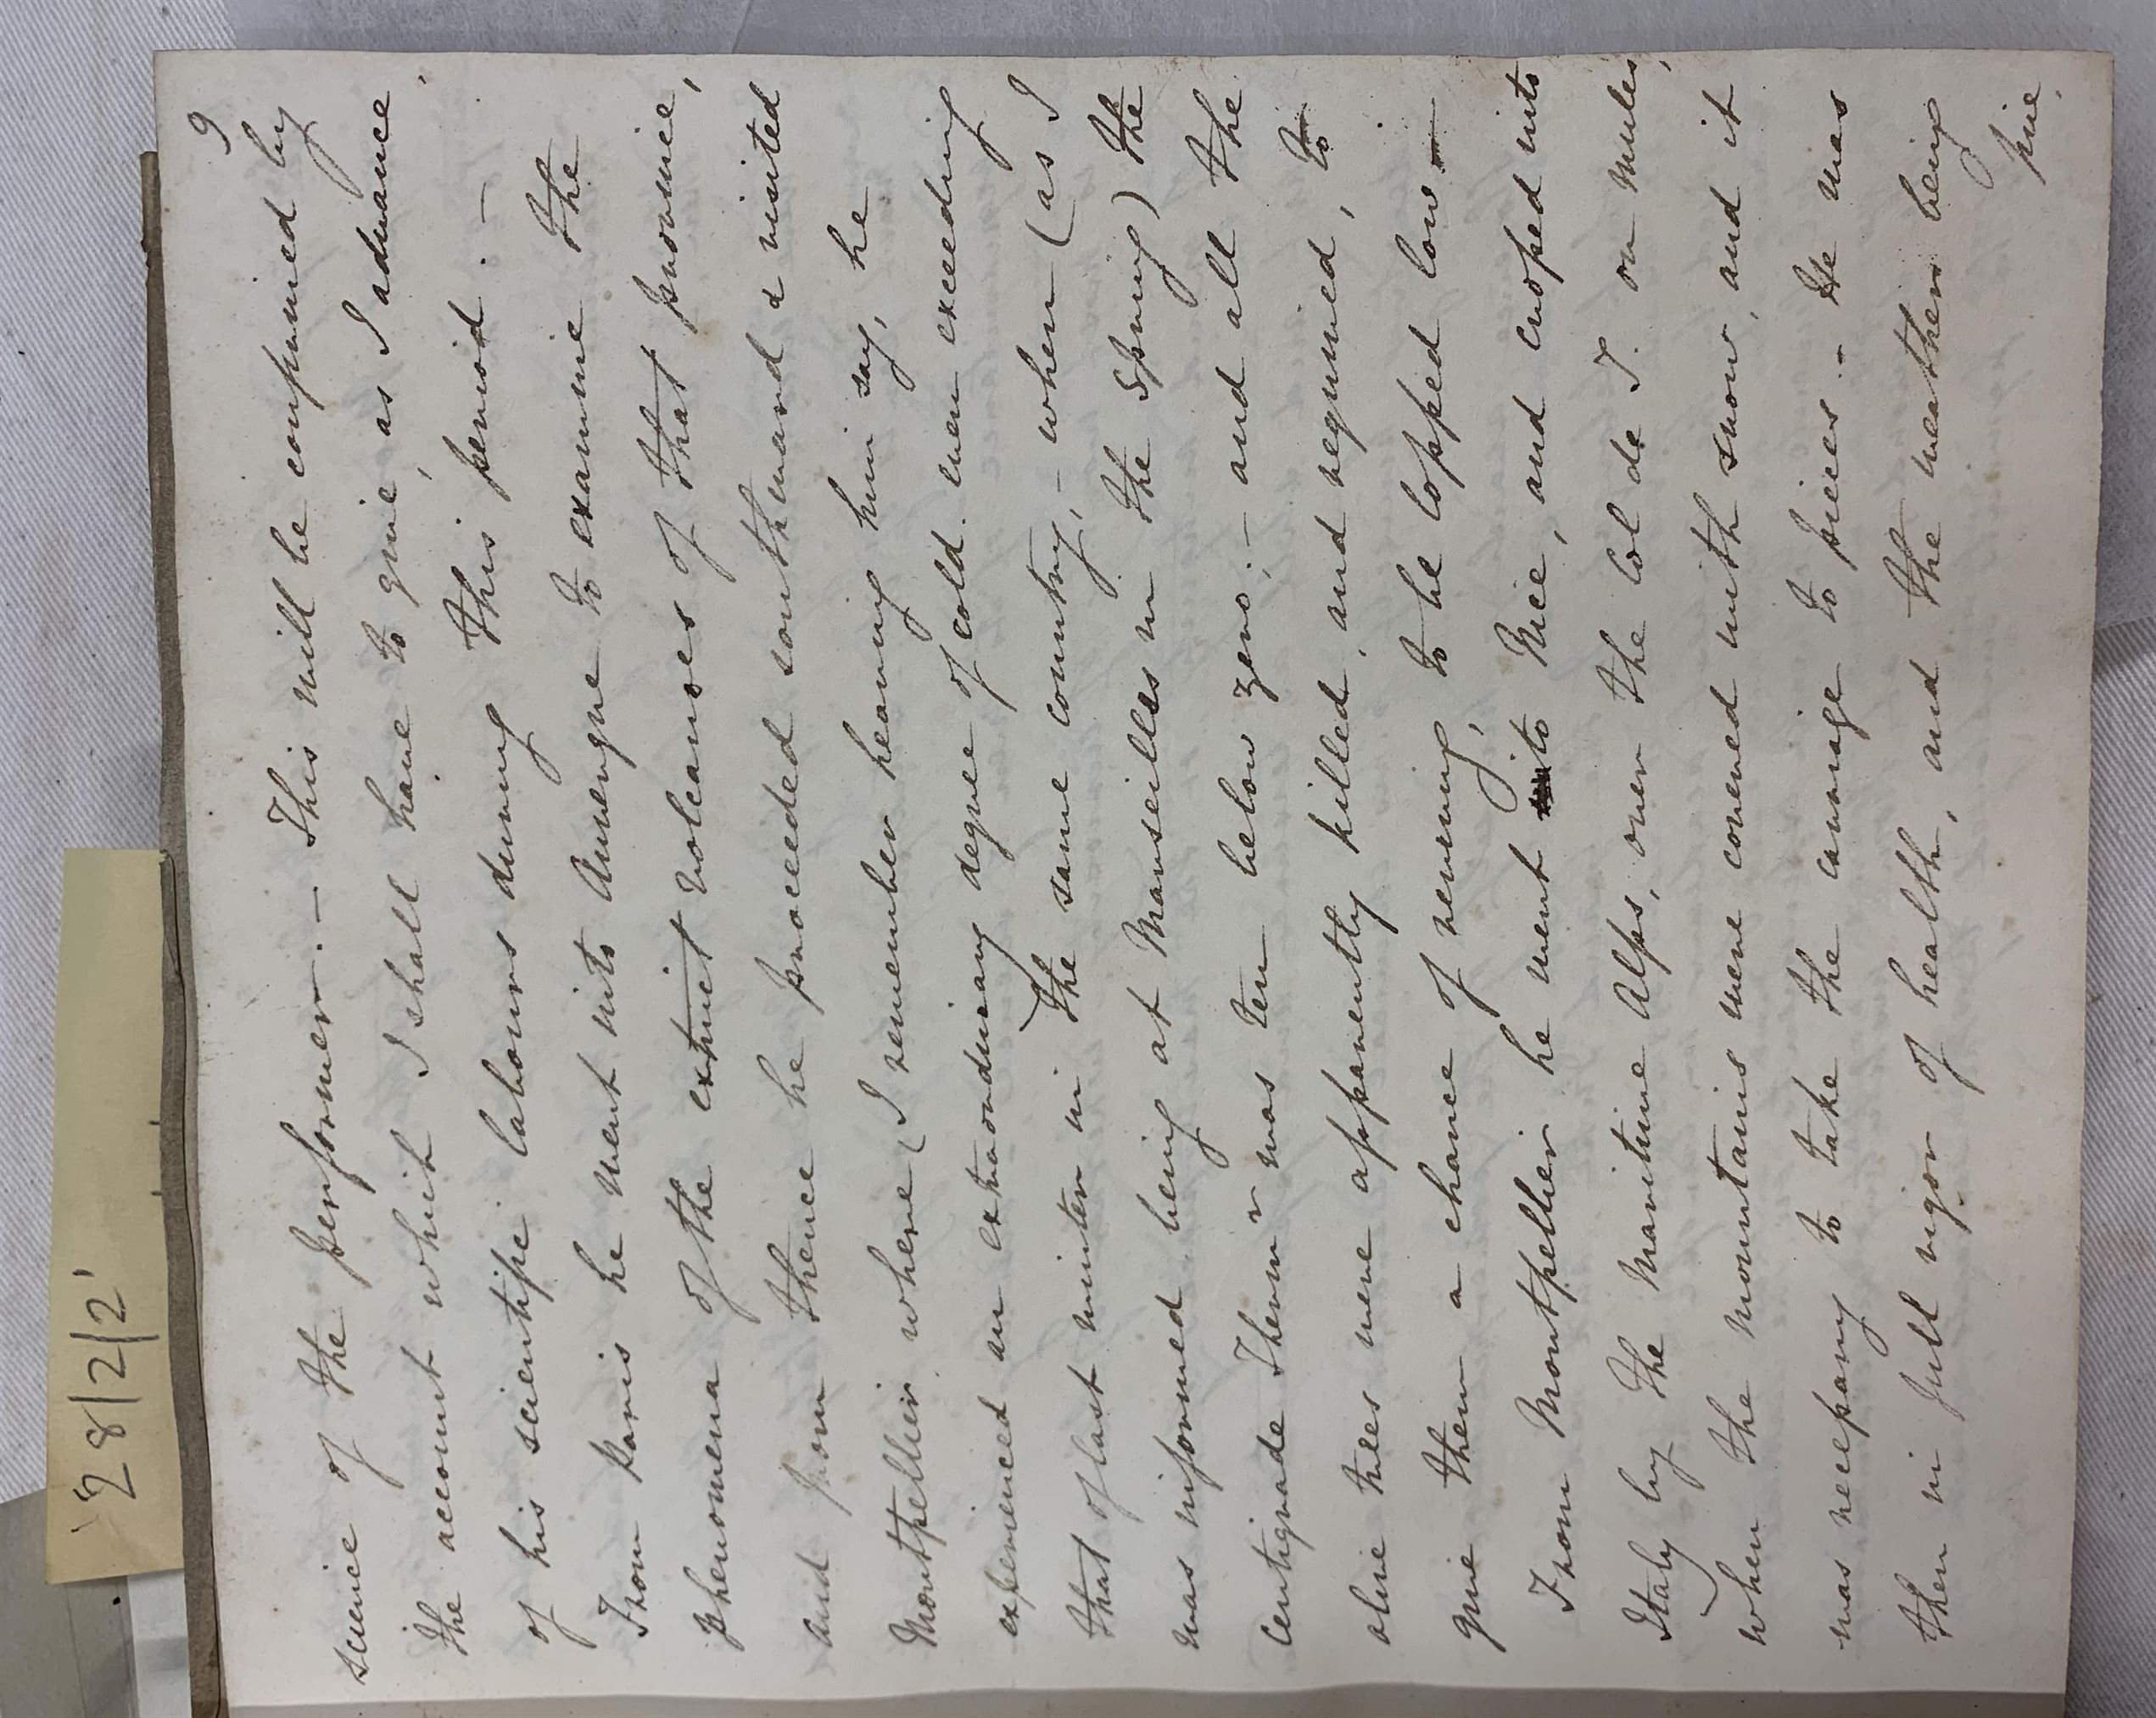 28/2/2'
9
science of the performer. — This will be compensated by
the account which I shall have to give, as I advance,
of his scientific labours during this period. —
From Paris he went into Auvergne to examine the
phenomena of the extinct volcanoes of that province,
and from thence he proceeded southward & visited
Montpellier, where (I remember hearing him say, he
experienced an extraordinary degree of cold, even exceeding
that of last winter in the same country, – when (as I
was informed, being at Marseilles in the Spring) the
Centigrade Therm r was ten below zero; – and all the
olive trees were apparently killed, and required, to
give them a chance of reviving, to be lopped low –
From Montpellier he went to Nice, and crossed into
Italy by the Maritime Alps, over the Col de T. on mules,
when the mountains were covered with snow, and it
was necessary to take the carriage to pieces. – He was
then in full vigor of health, and the weather being
fine.